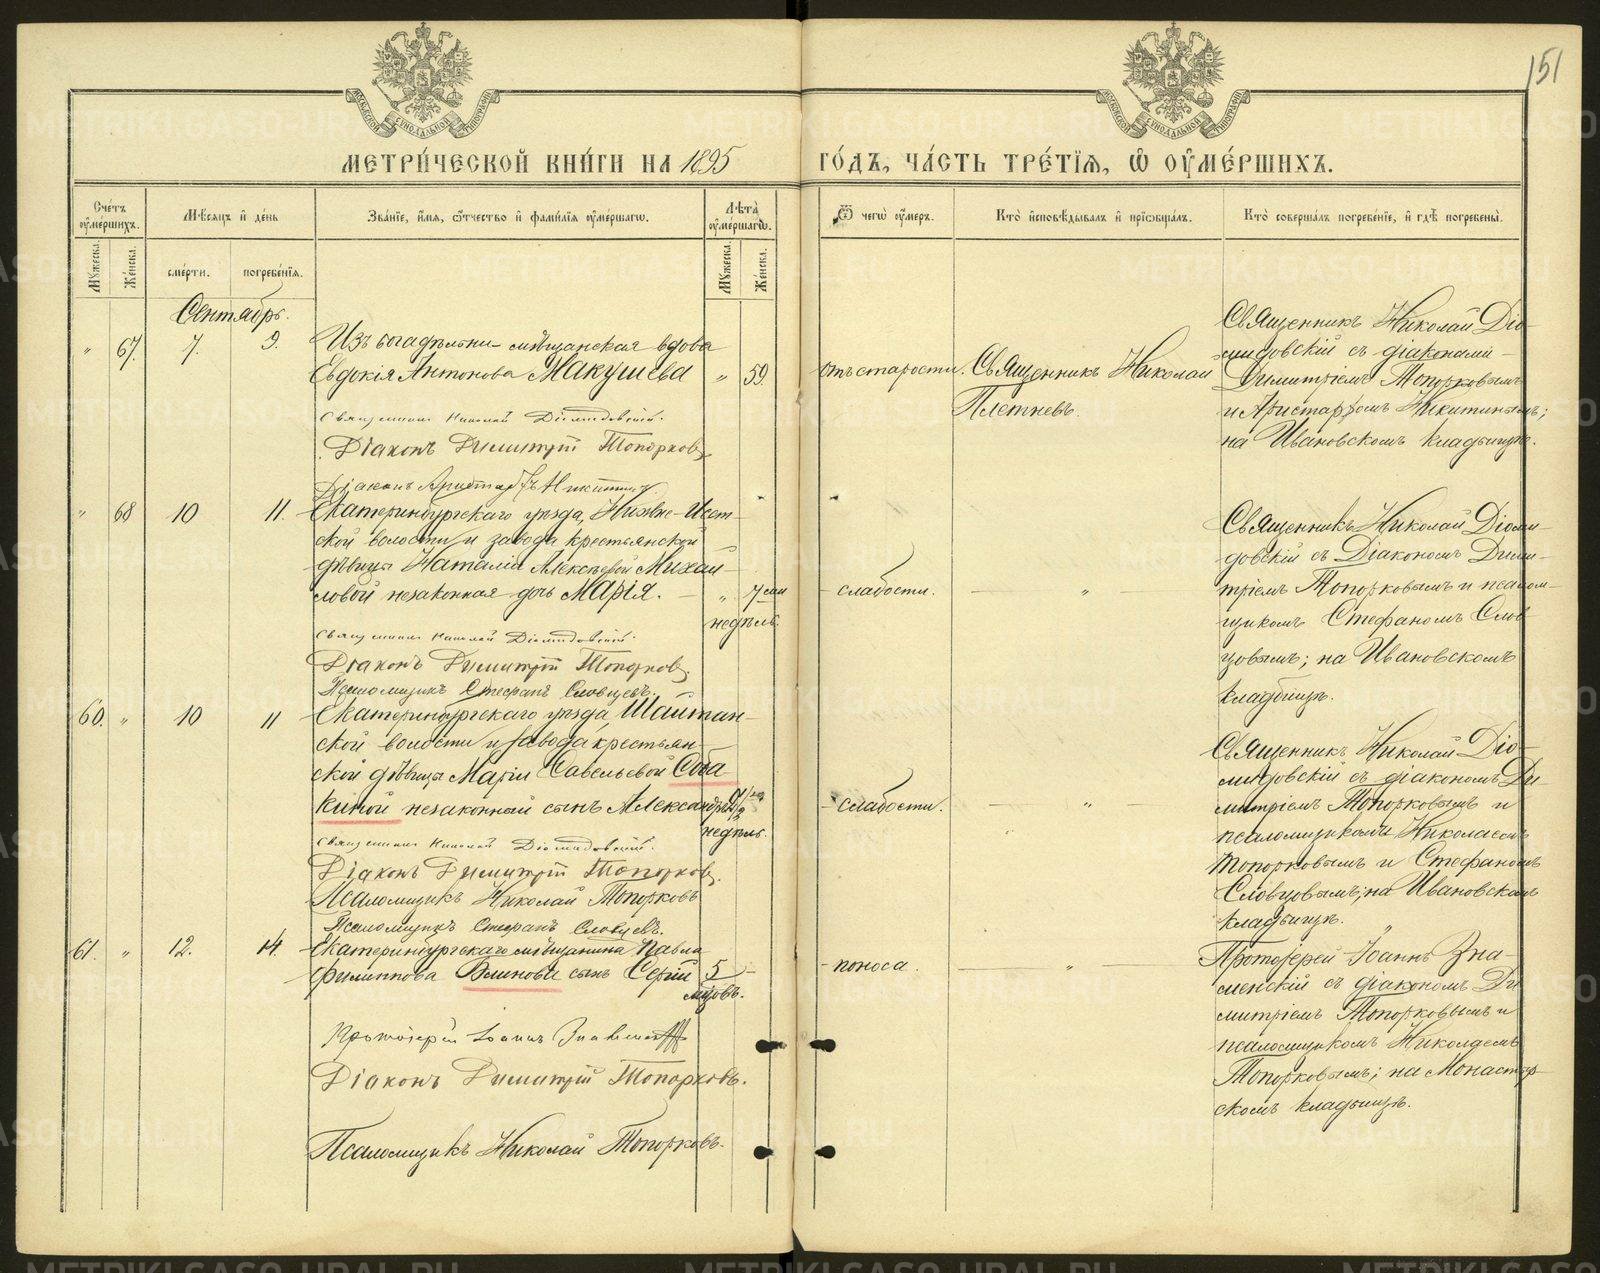 151
МЕТРИ́ЧЕСКОЙ КНИ́ГИ НА 1895 ГО́ДЪ, ЧА́СТЬ ТРЕ́ТЇѦ, Ѽ ОУ҆МЕ́РШИХЪ.
Сче́тъ оу҆ме́ршихъ.
Мѣ́сяцъ и҆ де́нь
Зва́нїе, и҆́мѧ, ѻ҆́тчество и҆ фами́лїѧ оу҆ме́ршагѡ.
Лѣ́та оу҆ме́ршагѡ.
Ѿ чегѡ̀ оу҆́меръ.
Кто̀ и҆сповѣ́дывалъ и҆ прїѡбща́лъ.
Кто̀ соверша́лъ погребе́нїе, и҆ гдѣ̀ погребены̀.
Мꙋ́жеска.
Же́нска.
сме́рти.
погребе́нїѧ.
Мꙋ́жеска.
Же́нска.
Сентябрь.
" 67. 7. 9.
Изъ богадѣльни- мѣщанская вдова
Евдокія Антонова Макушева " 59.
Священникъ Николай Діомидовскій.
Діаконъ Димитрій Топорковъ
Діаконъ Аристархъ Никитинъ.
отъ старости.
Священникъ Николай
Плетневъ.
Священникъ Николай Діо-
мидовскій съ діаконами
Димитріемъ Топорковымъ
и Аристархомъ Никитинымъ;
на Ивановскомъ кладбищѣ.
" 68 10 11.
Екатеринбургскаго уѣзда, Нижне-Исет-
ской волости и завода крестьянской
дѣвицы Наталіи Алексѣевой Михай-
ловой незаконная дочь Марія. " 7 ми
недѣль.
Священникъ Николай Діомидовскій.
Діаконъ Димитрій Топорковъ.
Псаломщикъ Стефанъ Словцевъ.
слабости. "
Священникъ Николай Діоми-
довскій съ Діакономъ Дими-
тріемъ Топорковымъ и псалом-
щикомъ Стефаномъ Слов
цовымъ; на Ивановскомъ
кладбищѣ.
60. " 10 11
Екатеринбургскаго уѣзда, Шайтан-
ской волости и завода крестьян-
ской дѣвицы Маріи Савельевой Соба
киной незаконный сынъ Александръ
недѣль.
Священникъ Николай Діомидовскій.
Діаконъ Димитрій Топорковъ.
Псаломщикъ Николай Топорковъ
Псаломщикъ Стефанъ Словцевъ.
слабости. "
Священникъ Николай Діо-
мидовскій съ діакономъ Ди-
митріемъ Топорковымъ и
псаломщиками Николаемъ
Топорковымъ и Стефаномъ
Словцовымъ; на Ивановскомъ
кладбищѣ.
61. " 12. 14.
Екатеринбургскаго мѣщанина Павла
Филиппова Блинова сынъ Сергій 5
мѣсяцевъ.
Протоіерей Іоаннъ Знаменскій
Діаконъ Димитрій Топорковъ.
Псаломщикъ Николай Топорковъ.
поноса. "
Протоіерей Іоаннъ Зна-
менскій съ діакономъ Ди
митріемъ Топорковымъ и
псаломщикомъ Николаемъ
Топорковымъ; на Монастыр-
скомъ кладбищѣ.